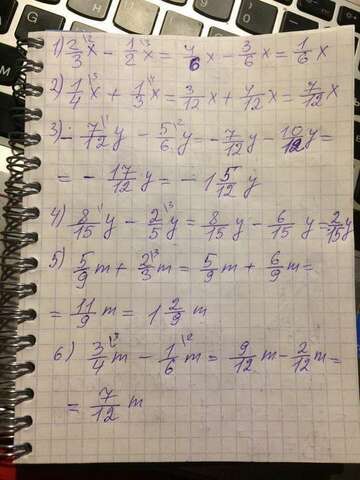 1) 2/3 x - 1/2 x = 4/6 x - 3/6 x = 1/6 x
2) 1/4 x + 1/3 x = 3/12 x + 4/12 x = 7/12 x
3) - 7/12 y - 5/6 y = - 7/12 y - 10/12 y =
= - 17/12 y = - 1 5/12 y
4) 8/15 y - 2/5 y = 8/15 y - 6/15 y = 2/15 y
5) 5/9 m + 2/3 m = 5/9 m + 6/9 m =
= 11/9 m = 1 2/9 m
6) 3/4 m - 1/6 m = 9/12 m - 2/12 m =
= 7/12 m